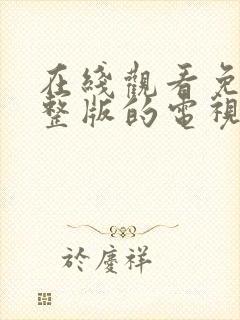 在綫觀看免
整版的電視
於慶祥